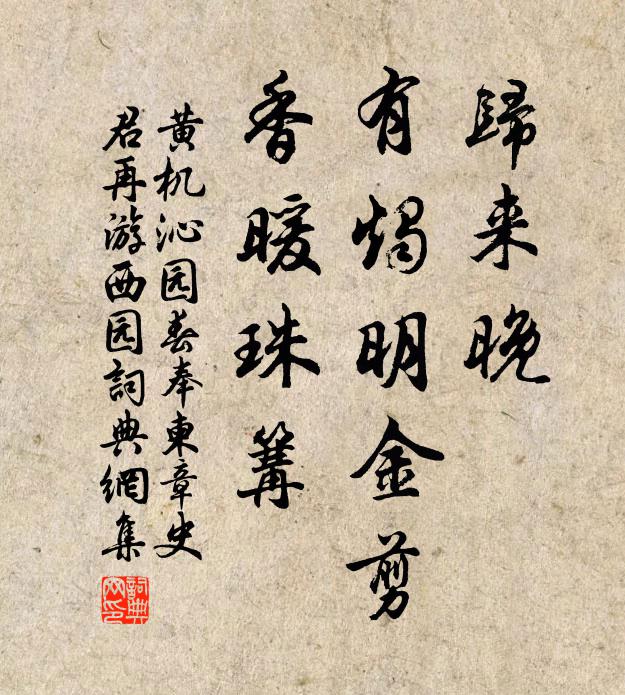 歸来晚
有燭明金剪
香暖珠篝
黄机沁园春奉柬章史
君再游西园詞典網集
詞典網印